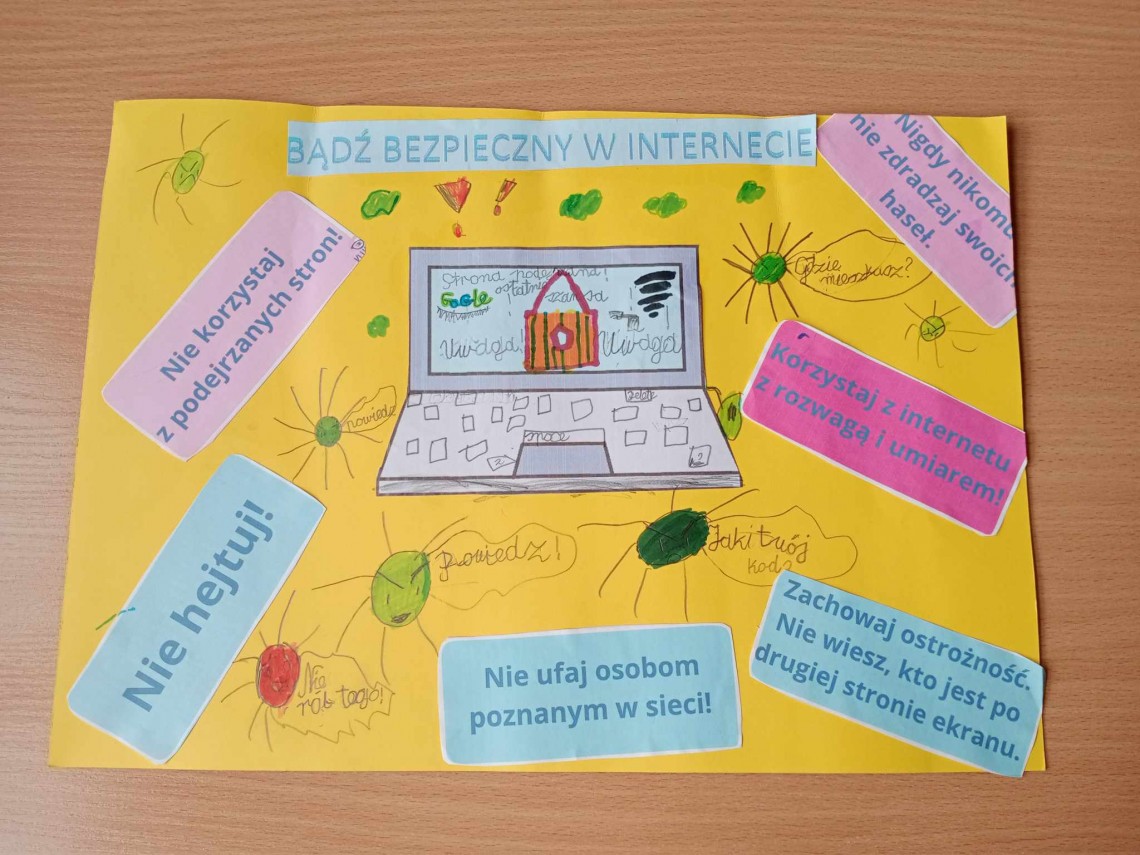 BĄDŹ BEZPIECZNY W INTERNECIE
Nigdy nikomu
nie zdradzaj swoich
haseł.
Nie korzystaj
z podejrzanych stron!
Strona podejrzana!
ostatnia
szansa
GOOGLE
Uwaga!
Uwaga
Gdzie
mieszkasz?
Korzystaj z internetu
z rozwagą i umiarem!
powiedz
Delete
space
2
?
Nie hejtuj!
powiedz!
Jaki twój
kod?
Nie
rób tego!
Nie ufaj osobom
poznanym w sieci!
Zachowaj ostrożność.
Nie wiesz, kto jest po
drugiej stronie ekranu.